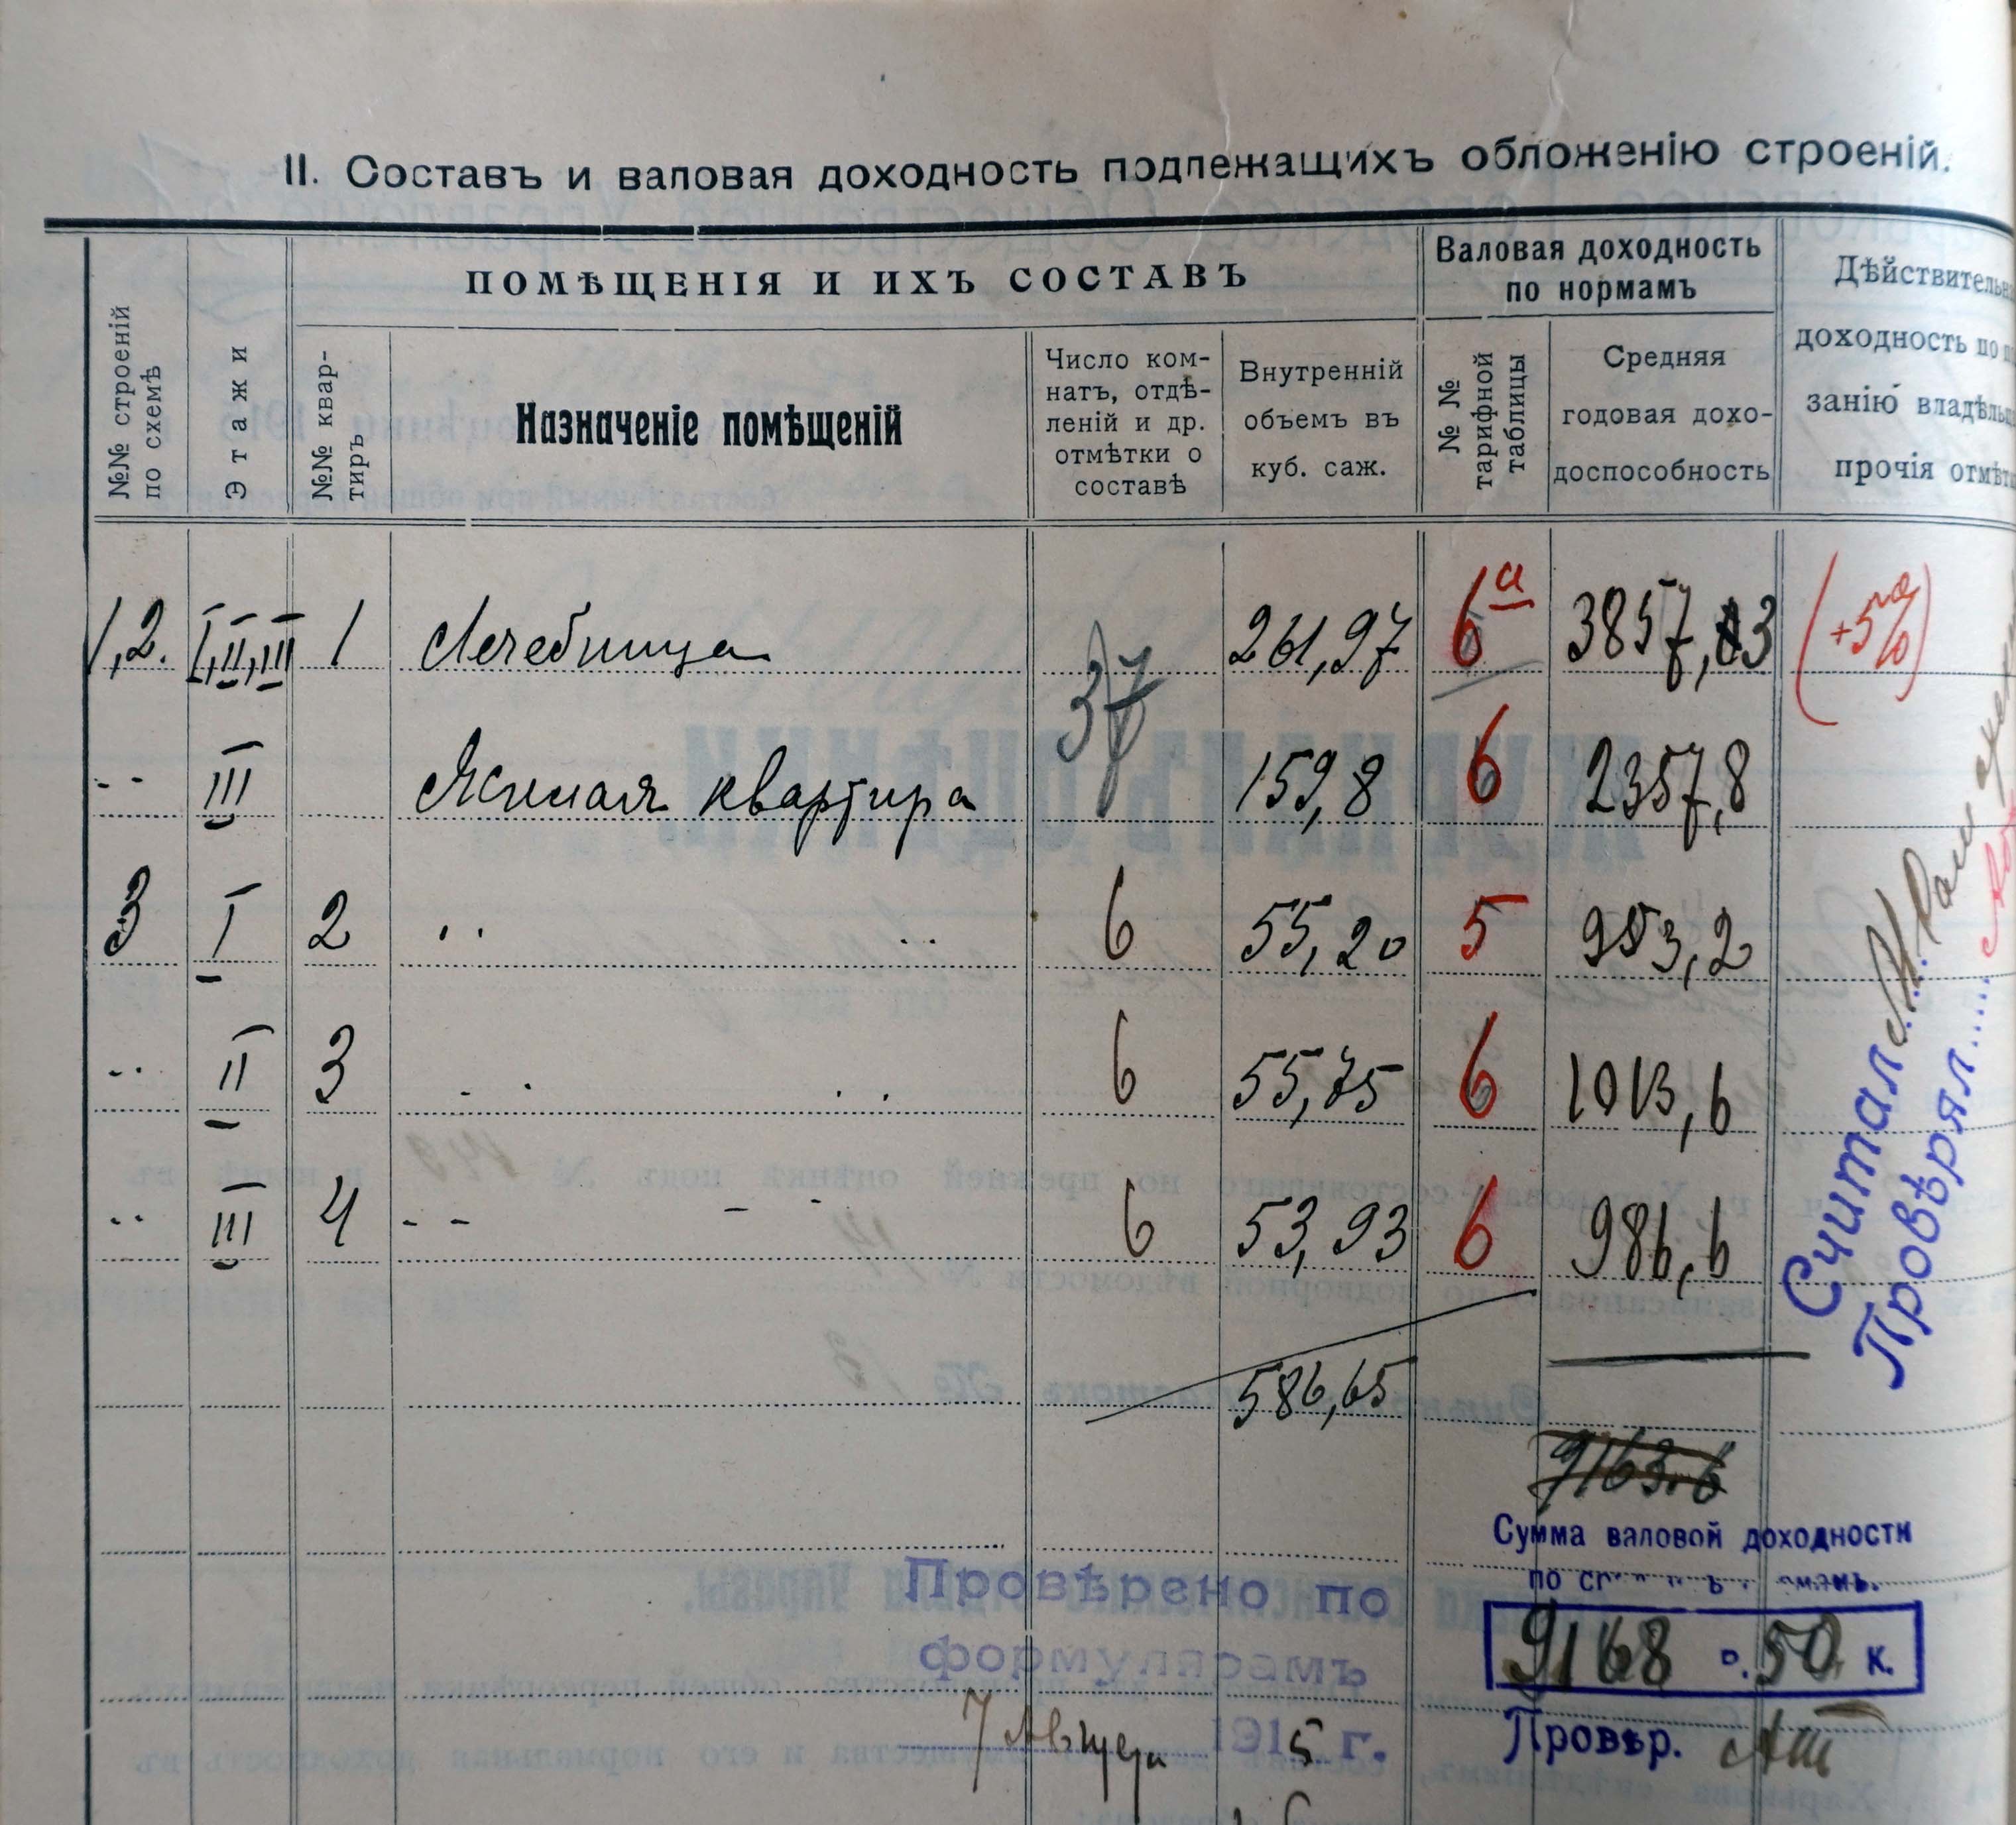 II. Составъ и валовая доходность подлежащихъ обложенію строеній.
№№ строеній по схемѣ
Этажи
ПОМѢЩЕНІЯ И ИХЪ СОСТАВЪ
№№ квар-
тиръ
Назначеніе помѣщеній
Число ком-
натъ, отдѣ-
леній и др.
отмѣтки о
составѣ
Внутренній
объемъ въ
куб. саж.
Валовая доходность
по нормамъ
№ №
тарифной
таблицы
Средняя
годовая дохо-
доспособность
Дѣйствительн
доходность по п
занію владѣльц
прочія отмѣт
1,2. I,II,III 1 Лечебница 37 261,97 6а 3857,03 (+5%)
" III Жилая квартира 159,8 6 2357,8
3 I 2 " " 6 55,20 5 953,2
" II 3 " " 6 55,75 6 1013,6
" III 4 " " 6 53,93 6 986,6
586,65
9163.6
Считал
Провѣрял
Сумма валовой доходности
по
9168 р. 50 к.
Провѣр.
Провѣрено по
формулярамъ
7 Августа 1915 г.